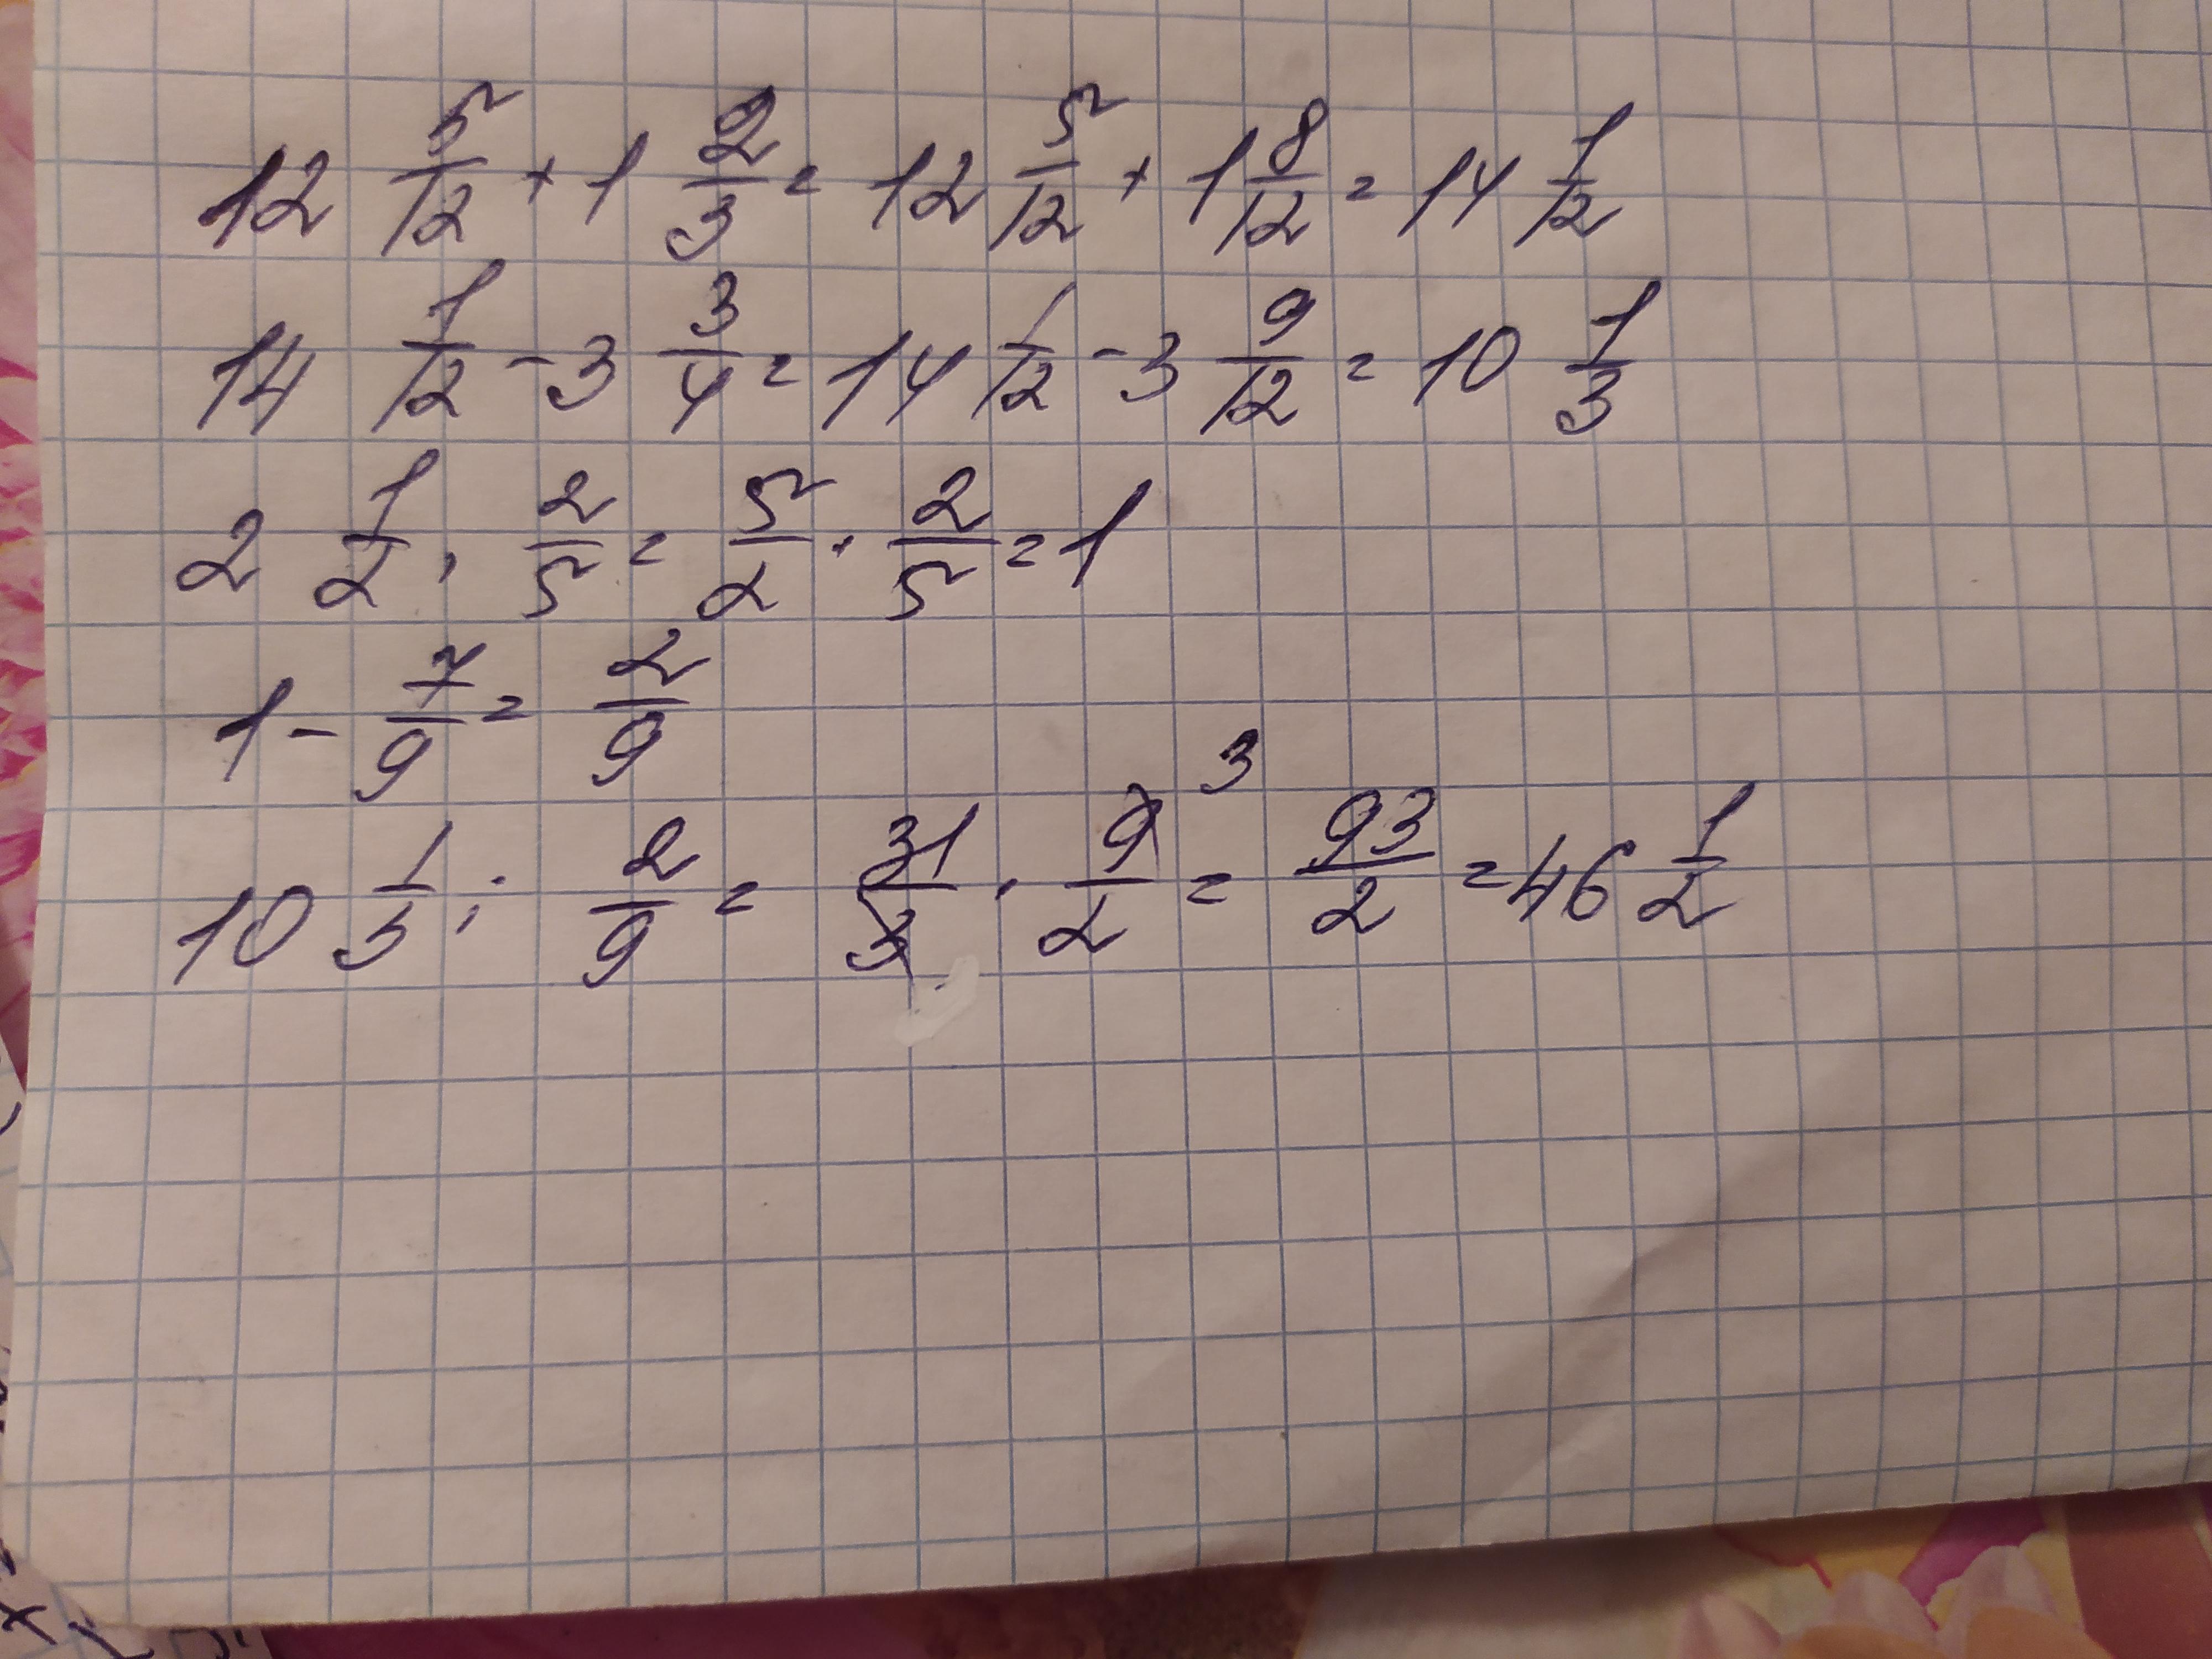 12 5/12 + 1 2/3 = 12 5/12 + 1 8/12 = 14 1/12
14 1/12 - 3 3/4 = 14 1/12 - 3 9/12 = 10 1/3
2 1/2 · 2/5 = 5/2 · 2/5 = 1
1 - 7/9 = 2/9
10 1/3 : 2/9 = 31/3 · 9/2 = 93/2 = 46 1/2
3